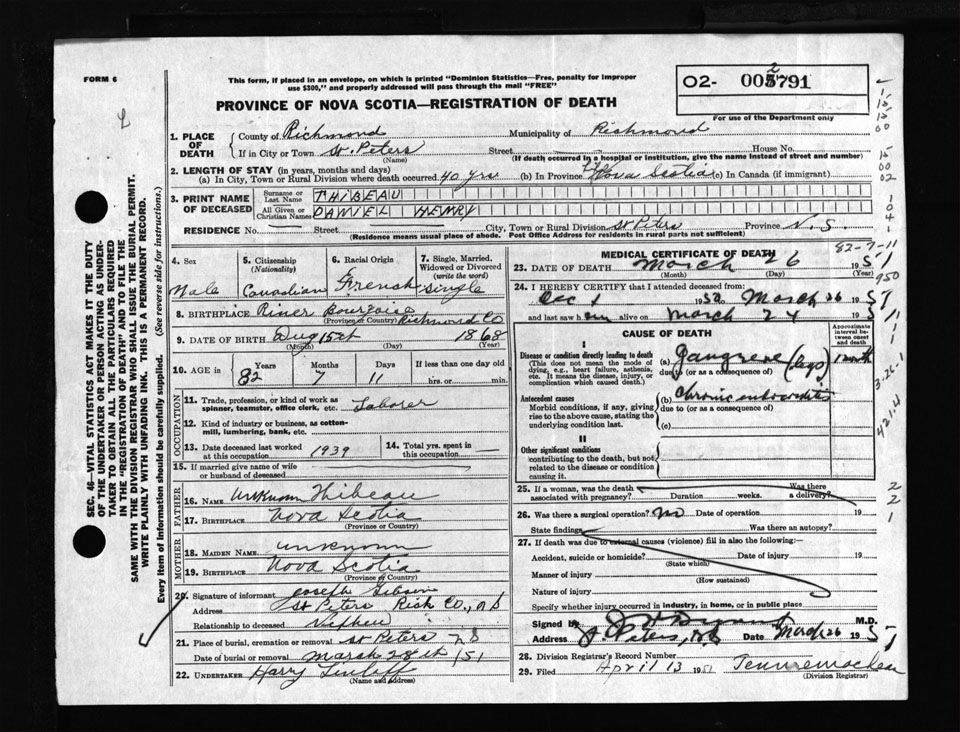 FORM 6
This form, if placed in an envelope, on which is printed "Dominion Statistics—Free, penalty for improper
use $300," and properly addressed will pass through the mail "FREE"
PROVINCE OF NOVA SCOTIA—REGISTRATION OF DEATH
02- 002791
For use of the Department only
1. PLACE OF DEATH County of Richmond Municipality of Richmond
If in City or Town St. Peters Street House No.
(Name) (If death occurred in a hospital or institution, give the name instead of street and number)
2. LENGTH OF STAY (in years, months and days)
(a) In City, Town or Rural Division where death occurred 40 yrs (b) In Province Life Nova Scotia (c) In Canada (if immigrant)
3. PRINT NAME OF DECEASED Surname or Last Name THIBEAU
All Given or Christian Names DANIEL HENRY
RESIDENCE No. Street City, Town or Rural Division St Peters Province N.S
(Residence means usual place of abode. Post Office Address for residents in rural parts not sufficient)
4. Sex Male
5. Citizenship (Nationality) Canadian
6. Racial Origin French
7. Single, Married, Widowed or Divorced (write the word) Single
8. BIRTHPLACE River Bourgoise Richmond Co
(Province or Country)
9. DATE OF BIRTH Aug 15th 1868
(Month) (Day) (Year)
10. AGE in Years 82 Months 7 Days 11 If less than one day old hrs. or min.
OCCUPATION
11. Trade, profession, or kind of work as spinner, teamster, office clerk, etc. Laborer
12. Kind of industry or business, as cotton-mill, lumbering, bank, etc.
13. Date deceased last worked at this occupation 1939
14. Total yrs. spent in this occupation
15. If married give name of wife or husband of deceased
FATHER
16. NAME unknown Thibeau
17. BIRTHPLACE Nova Scotia
(Province or Country)
MOTHER
18. MAIDEN NAME unknown
19. BIRTHPLACE Nova Scotia
(Province or Country)
20. Signature of informant Joseph Gibson
Address St Peters Rich Co., N S
Relationship to deceased Nephew
21. Place of burial, cremation or removal St Peters N S
Date of burial or removal March 28th /51
22. UNDERTAKER Harry
(Name and Address)
MEDICAL CERTIFICATE OF DEATH
82-7-11
23. DATE OF DEATH March 26 1951
(Month) (Day) (Year)
24. I HEREBY CERTIFY that I attended deceased from:
Dec 1 1950 March 26 1951
and last saw him alive on March 24 1951
CAUSE OF DEATH
Approximate interval between onset and death
I
Disease or condition directly leading to death (a) Gangrene (legs) 1 month
(This does not mean the mode of dying, e.g., heart failure, asthenia, etc. It means the disease, injury, or complication which caused death.)
due to (or as a consequence of)
Antecedent causes (b) Chronic endocarditis
Morbid conditions, if any, giving rise to the above cause, stating the underlying condition last.
due to (or as a consequence of)
(c)
II
Other significant conditions
contributing to the death, but not related to the disease or condition causing it.
25. If a woman, was the death associated with pregnancy? Duration weeks. Was there a delivery?
26. Was there a surgical operation? no Date of operation 19
State findings Was there an autopsy?
27. If death was due to external causes (violence) fill in also the following:—
Accident, suicide or homicide? Date of injury 19
(State which)
Manner of injury
(How sustained)
Nature of injury
Specify whether injury occurred in industry, in home, or in public place
Signed by M.D.
Address St Peters, N.S. Date March 26 1951
28. Division Registrar's Record Number
29. Filed April 13 1951
(Division Registrar)
SEC. 46—VITAL STATISTICS ACT MAKES IT THE DUTY
OF THE UNDERTAKER OR PERSON ACTING AS UNDER-
TAKER TO OBTAIN ALL THE PARTICULARS REQUIRED
IN THE "REGISTRATION OF DEATH" AND TO FILE THE
SAME WITH THE DIVISION REGISTRAR WHO SHALL ISSUE THE BURIAL PERMIT.
WRITE PLAINLY WITH UNFADING INK. THIS IS A PERMANENT RECORD.
Every item of information should be carefully supplied. (See reverse side for instructions.)